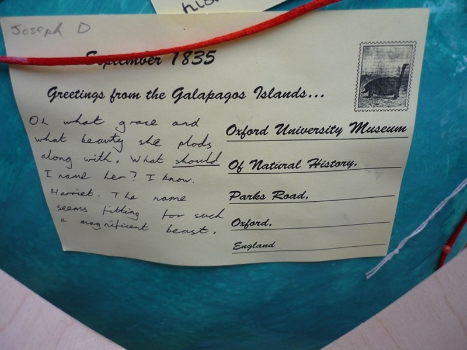 his
Joseph D
September 1835
Greetings from the Galapagos Islands...
Oh what grace and
what beauty she plods
along with. What should
I name her? I know.
Harriet. The name
seems fitting for such
a magnificent beast.
Oxford University Museum
Of Natural History.
Parks Road.
Oxford.
England